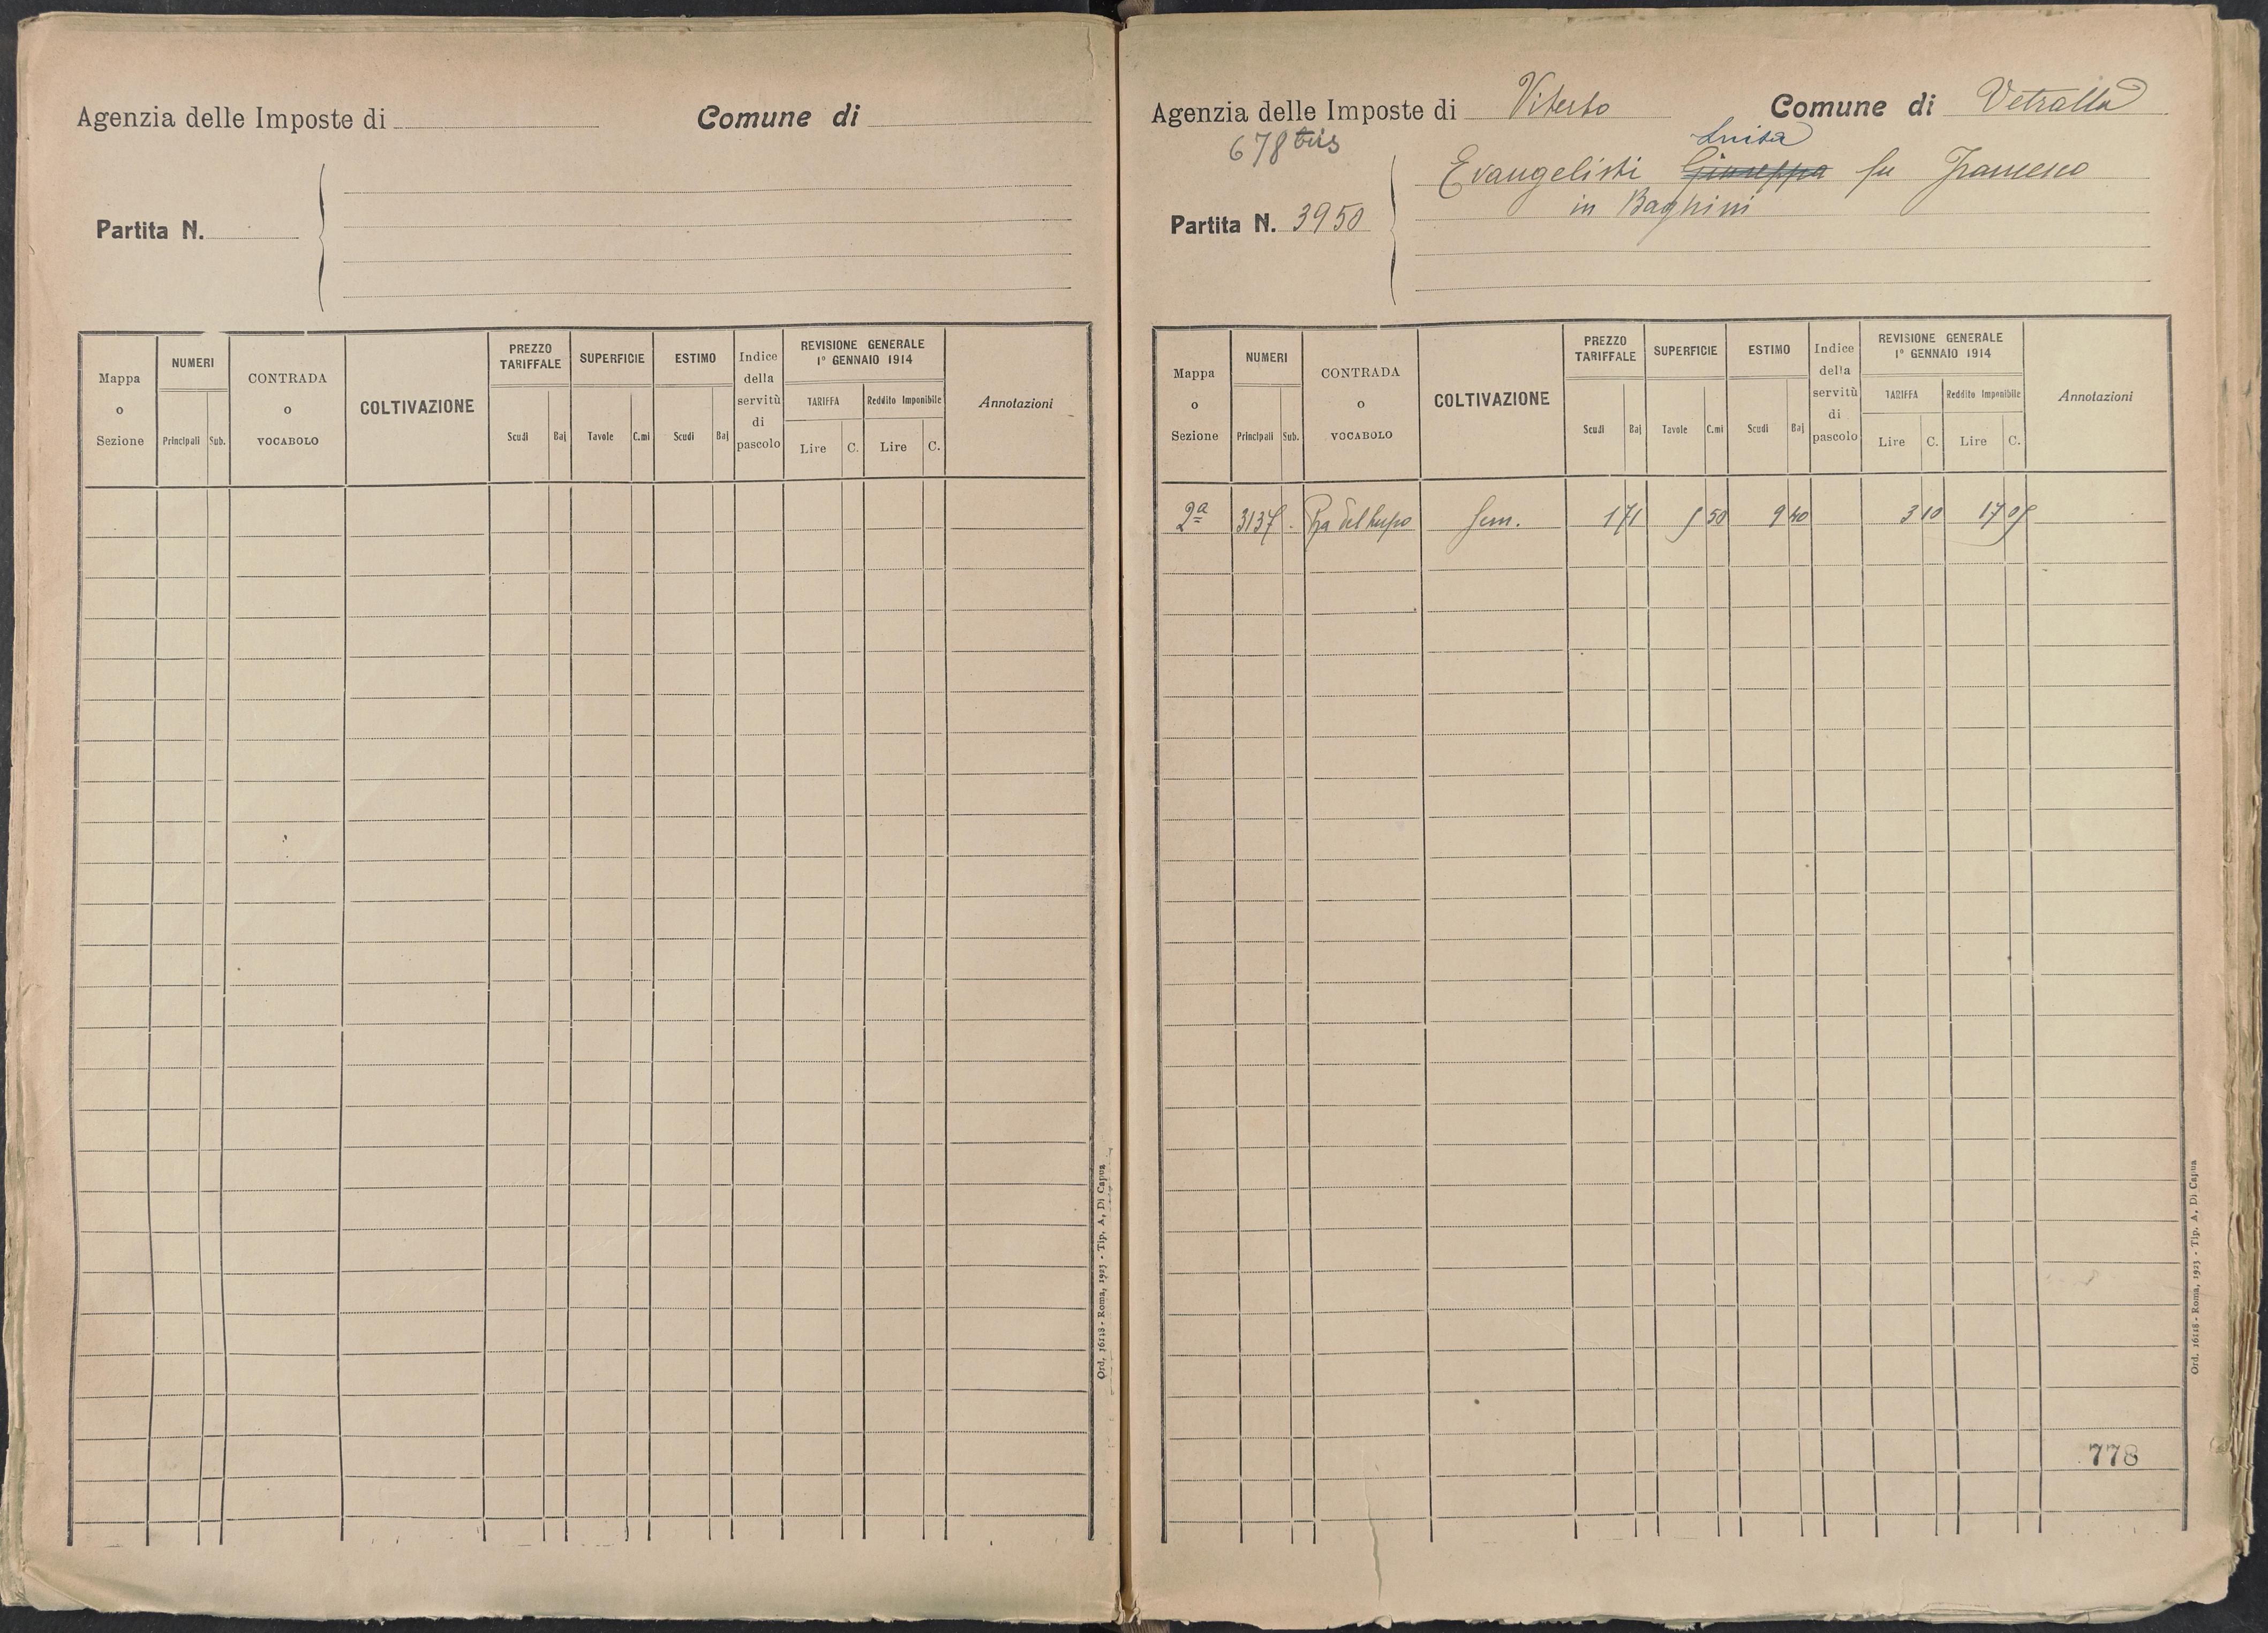 Agenzia delle Imposte di
Comune di
Partita N.
Mappa o Sezione
NUMERI
Principali
Sub.
CONTRADA o VOCABOLO
COLTIVAZIONE
PREZZO TARIFFALE
Scudi
Baj
SUPERFICIE
Tavole
C.mi
ESTIMO
Scudi
Baj
Indice della servitù di pascolo
REVISIONE GENERALE
1° GENNAIO 1914
TARIFFA
Reddito Imponibile
Lire
C.
Lire
C.
Annotazioni
Ord. 16118 - Roma, 1923 - Tip. A, Di Capua
Agenzia delle Imposte di Viterbo
Comune di Vetralla
678 bis
Luisa
Evangelisti Giuseppa fu Francesco
in Baghini
Partita N. 3950
Mappa o Sezione
NUMERI
Principali
Sub.
CONTRADA o VOCABOLO
COLTIVAZIONE
PREZZO TARIFFALE
Scudi
Baj
SUPERFICIE
Tavole
C.mi
ESTIMO
Scudi
Baj
Indice della servitù di pascolo
REVISIONE GENERALE
1° GENNAIO 1914
TARIFFA
Reddito Imponibile
Lire
C.
Lire
C.
Annotazioni
2ª 3137 del Lupo Sem. 1 71 5 50 9 40 3 10 17 05
778
Ord. 16118 - Roma, 1923 - Tip. A, Di Capua